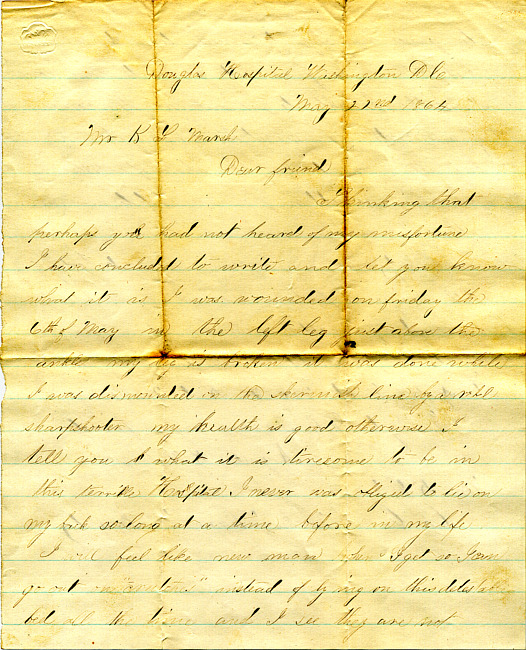 Douglas Hospital Washington D C
May 22nd 1864
Mr K L Marsh
Dear friend
Thinking that
perhaps you had not heard of my misfortune
I have concluded to write and let you know
what it is I was wounded on friday the
6th of May in the left leg just above the
ankle my leg is broken it was done while
I was dismounted on the skirmish line by a rebel
sharpshooter my health is good otherwise I
tell you what it is tiresome to be in
this terrible Hospital I never was obliged to lie on
my back so long at a time before in my life
I will feel like new man when I get so I can
go out on instead of lying on this detestable
bed all the time and I see they are not